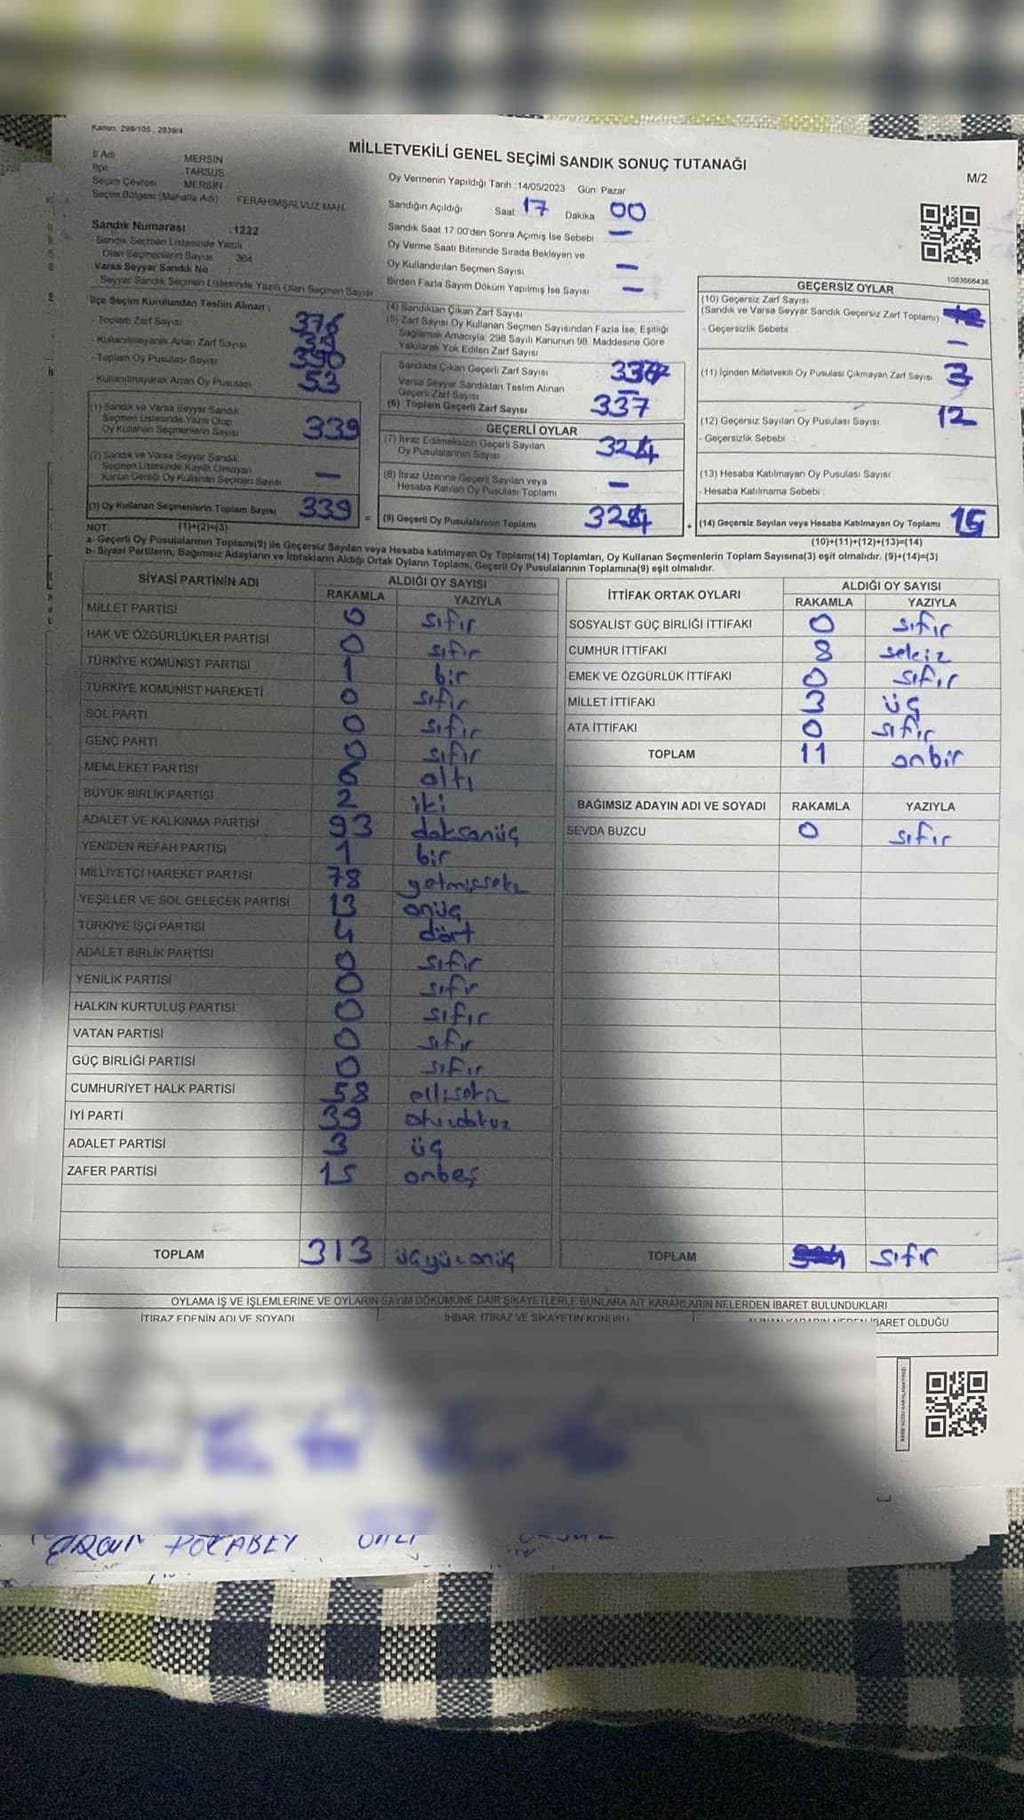 Kanun: 298/105 , 2839/4
MİLLETVEKİLİ GENEL SEÇİMİ SANDIK SONUÇ TUTANAĞI
M/2
İl Adı MERSİN
İlçe TARSUS
Seçim Çevresi MERSİN
Seçim Bölgesi (Mahalle Adı) FERAHİMŞALVUZ MAH.
Oy Vermenin Yapıldığı Tarih : 14/05/2023 Gün: Pazar
Sandığın Açıldığı Saat 17 Dakika 00
Sandık Saat 17:00'den Sonra Açımış İse Sebebi -
Oy Verme Saati Bitiminde Sırada Bekleyen ve
Oy Kullandırılan Seçmen Sayısı -
Birden Fazla Sayım Döküm Yapılmış İse Sayısı -
Sandık Numarası : 1222
Sandık Seçmen Listesinde Yazılı
Olan Seçmenlerin Sayısı 364
Varsa Seyyar Sandık No :
Seyyar Sandık Seçmen Listesinde Yazılı Olan Seçmen Sayısı
1083666436
İlçe Seçim Kurulundan Teslim Alınan :
- Toplam Zarf Sayısı 376
- Kullanılmayarak Artan Zarf Sayısı
- Toplam Oy Pusulası Sayısı 390
- Kullanılmayarak Artan Oy Pusulası 53
(1) Sandık ve Varsa Seyyar Sandık
Seçmen Listesinde Yazılı Olup
Oy Kullanan Seçmenlerin Sayısı 339
(2) Sandık ve Varsa Seyyar Sandık
Seçmen Listesinde Kayıtlı Olmayan
Kanun Gereği Oy Kullanan Seçmen Sayısı -
(3) Oy Kullanan Seçmenlerin Toplam Sayısı 339
(4) Sandıktan Çıkan Zarf Sayısı
(5) Zarf Sayısı Oy Kullanan Seçmen Sayısından Fazla İse, Eşitliği
Sağlamak Amacıyla, 298 Sayılı Kanunun 98. Maddesine Göre
Yakılarak Yok Edilen Zarf Sayısı
Sandıkta Çıkan Geçerli Zarf Sayısı
Varsa Seyyar Sandıktan Teslim Alınan
Geçerli Zarf Sayısı -
(6) Toplam Geçerli Zarf Sayısı 337
GEÇERLİ OYLAR
(7) İtiraz Edilmeksizin Geçerli Sayılan
Oy Pusulalarının Sayısı 324
(8) İtiraz Üzerine Geçerli Sayılan veya
Hesaba Katılan Oy Pusulası Toplamı -
= (9) Geçerli Oy Pusulalarının Toplamı 324
GEÇERSİZ OYLAR
(10) Geçersiz Zarf Sayısı
(Sandık ve Varsa Seyyar Sandık Geçersiz Zarf Toplamı)
- Geçersizlik Sebebi -
(11) İçinden Milletvekili Oy Pusulası Çıkmayan Zarf Sayısı 3
(12) Geçersiz Sayılan Oy Pusulası Sayısı 12
- Geçersizlik Sebebi
(13) Hesaba Katılmayan Oy Pusulası Sayısı
- Hesaba Katılmama Sebebi
+ (14) Geçersiz Sayılan veya Hesaba Katılmayan Oy Toplamı 15
NOT: (1)+(2)=(3) (10)+(11)+(12)+(13)=(14)
a- Geçerli Oy Pusulalarının Toplamı(9) ile Geçersiz Sayılan veya Hesaba katılmayan Oy Toplamı(14) Toplamları, Oy Kullanan Seçmenlerin Toplam Sayısına(3) eşit olmalıdır. (9)+(14)=(3)
b- Siyasi Partilerin, Bağımsız Adayların ve İttifakların Aldığı Ortak Oyların Toplamı, Geçerli Oy Pusulalarının Toplamına(9) eşit olmalıdır.
SİYASİ PARTİNİN ADI ALDIĞI OY SAYISI
RAKAMLA YAZIYLA
MİLLET PARTİSİ 0 sıfır
HAK VE ÖZGÜRLÜKLER PARTİSİ 0 sıfır
TÜRKİYE KOMÜNİST PARTİSİ 1 bir
TÜRKİYE KOMÜNİST HAREKETİ 0 sıfır
SOL PARTİ 0 sıfır
GENÇ PARTİ 0 sıfır
MEMLEKET PARTİSİ 6 altı
BÜYÜK BİRLİK PARTİSİ 2 iki
ADALET VE KALKINMA PARTİSİ 93 doksanüç
YENİDEN REFAH PARTİSİ 1 bir
MİLLİYETÇİ HAREKET PARTİSİ 78 yetmişsekz
YEŞİLLER VE SOL GELECEK PARTİSİ 13 onüç
TÜRKİYE İŞÇİ PARTİSİ 4 dört
ADALET BİRLİK PARTİSİ 0 sıfır
YENİLİK PARTİSİ 0 sıfır
HALKIN KURTULUŞ PARTİSİ 0 sıfır
VATAN PARTİSİ 0 sıfır
GÜÇ BİRLİĞİ PARTİSİ 0 sıfır
CUMHURİYET HALK PARTİSİ 58 ellisekiz
İYİ PARTİ 39 otuzdokuz
ADALET PARTİSİ 3 üç
ZAFER PARTİSİ 15 onbeş
TOPLAM 313 üçyüzonüç
İTTİFAK ORTAK OYLARI ALDIĞI OY SAYISI
RAKAMLA YAZIYLA
SOSYALİST GÜÇ BİRLİĞİ İTTİFAKI 0 sıfır
CUMHUR İTTİFAKI 8 sekiz
EMEK VE ÖZGÜRLÜK İTTİFAKI 0 sıfır
MİLLET İTTİFAKI 3 üç
ATA İTTİFAKI 0 sıfır
TOPLAM 11 onbir
BAĞIMSIZ ADAYIN ADI VE SOYADI RAKAMLA YAZIYLA
SEVDA BUZCU 0 sıfır
TOPLAM sıfır
OYLAMA İŞ VE İŞLEMLERİNE VE OYLARIN SAYIM DÖKÜMÜNE DAİR ŞİKAYETLERLE BUNLARA AİT KARARLARIN NELERDEN İBARET BULUNDUKLARI
İTİRAZ EDENİN ADI VE SOYADI İHBAR, İTİRAZ VE ŞİKAYETİN KONUSU ALINAN KARARIN NEDEN İBARET OLDUĞU